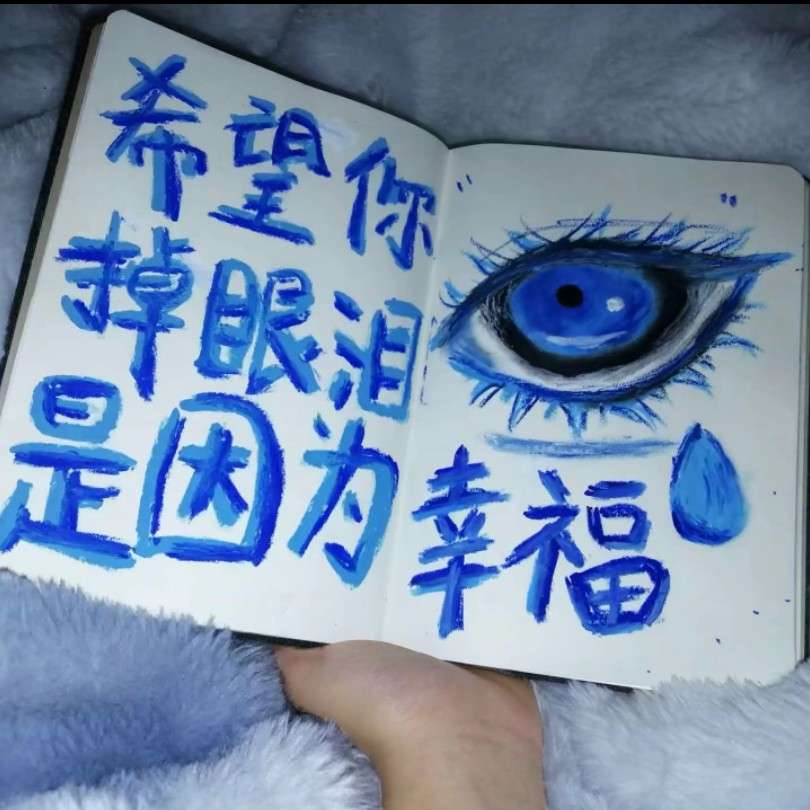 希望你
掉眼泪
是因为
幸福